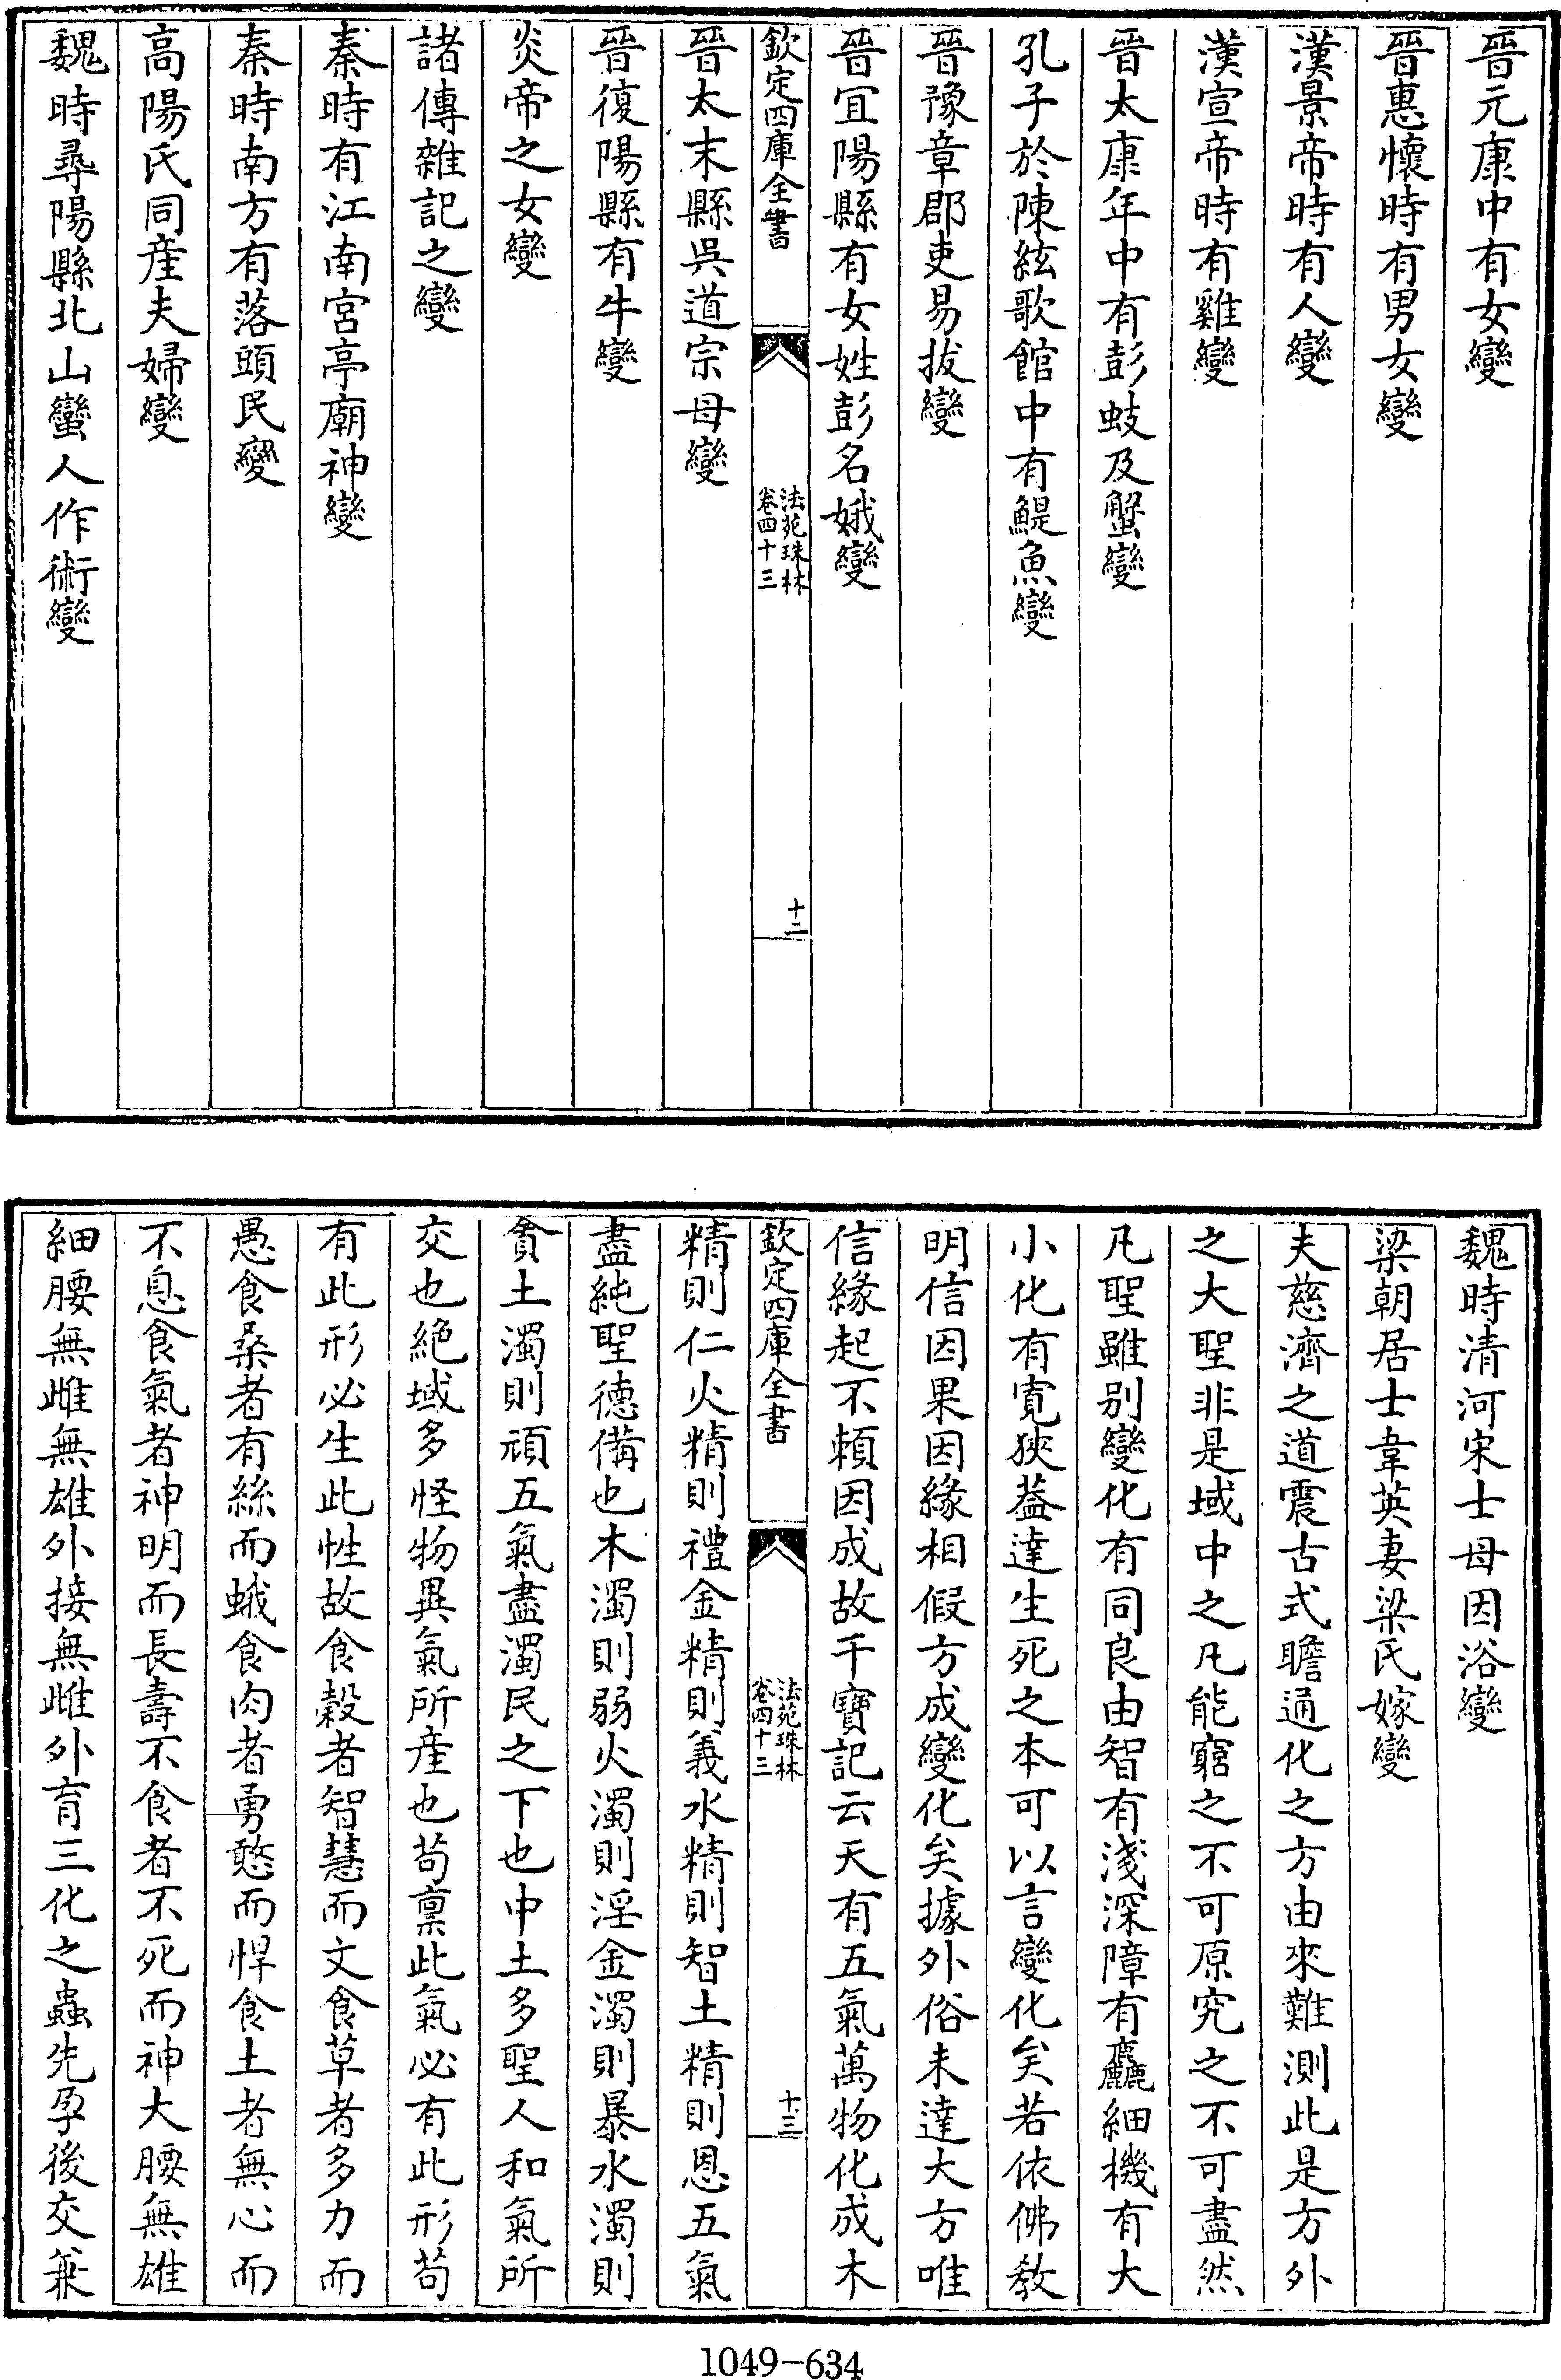 晉元康中有女變
晉惠懷時有男女變
漢景帝時有人變
漢宣帝時有雞變
晉太康年中有彭蚑及蟹變
孔子於陳絃歌館中有鯷魚變
晉豫章郡吏易拔變
晉宜陽縣有女姓彭名娥變
欽定四庫全書
法苑珠林
卷四十三
十二
晉太末縣吳道宗母變
晉復陽縣有牛變
炎帝之女變
諸傳雜記之變
秦時有江南宮亭廟神變
秦時南方有落頭民變
高陽氏同產夫婦變
魏時尋陽縣北山蠻人作術變
魏時清河宋士母因浴變
梁朝居士韋英妻梁氏嫁變
夫慈濟之道震古式瞻通化之方由來難測此是方外
之大聖非是域中之凡能窮之不可原究之不可盡然
凡聖雖別變化有同良由智有淺深障有麤細機有大
小化有寬狹葢達生死之本可以言變化矣若依佛教
明信因果因緣相假方成變化矣據外俗未達大方唯
信緣起不賴因成故千寶記云天有五氣萬物化成木
欽定四庫全書
法苑珠林
卷四十三
十三
精則仁火精則禮金精則義水精則智土精則恩五氣
盡純聖德備也木濁則弱火濁則淫金濁則暴水濁則
貪土濁則頑五氣盡濁民之下也中土多聖人和氣所
交也絕域多怪物異氣所產也苟稟此氣必有此形苟
有此形必生此性故食穀者智慧而文食草者多力而
愚食桑者有絲而蛾食肉者勇憨而悍食土者無心而
不息食氣者神明而長壽不食者不死而神大腰無雄
細腰無雌無雄外接無雌外育三化之蟲先孕後交兼
1049-634